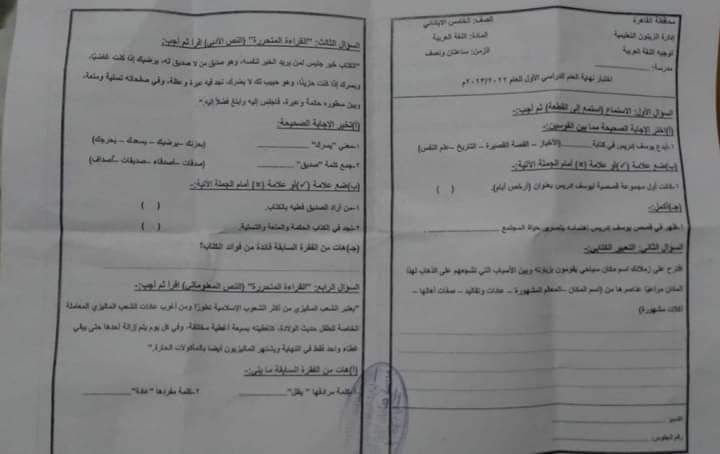 محافظة القاهرة
إدارة الزيتون التعليمية
توجيه اللغة العربية
مدرسة:
الصف: الخامس الابتدائي
المادة: اللغة العربية
الزمن: ساعتان ونصف
اختبار نهاية العام للدراسي الأول للعام ٢٠٢٢/٢٠٢٣م
السؤال الأول: الاستماع (استمع إلى القطعة) ثم أجب:-
(أ)اختر الإجابة الصحيحة مما بين القوسين:-
١-أبدع يوسف إدريس في كتابة.........(الأخبار – القصة القصيرة – التاريخ – علم النفس)
(ب)ضع علامة (✓) أو علامة (×) أمام الجملة الآتية:-
١-كانت أول مجموعة قصصية ليوسف إدريس بعنوان (أرخص أيام). ( )
(ج)أكمل:-
١-ظهر في قصص يوسف إدريس اهتمامه بتصوير حياة المجتمع ............
السؤال الثاني: التعبير الكتابي:-
اقترح على زملائك اسم مكان سياحي يقومون بزيارته وبين الأسباب التي تشجعهم على الذهاب لهذا
المكان مراعيًا عناصرها من (اسم المكان – المعالم المشهورة – عادات وتقاليد – صفات أهالها –
أكلات مشهورة)
السؤال الثالث: "القراءة المتحررة" (النص الأدبي) اقرأ ثم أجب:-
"الكتاب خير جليس لمن يريد الخير لنفسه، وهو صديق من لا صديق له، يرضيك إذا كنت غاضبًا،
ويسرك إذا كنت حزينًا، وهو حبيب لك لا يضرك، تجد فيه عبرة وعظة، وفي صفحاته تسلية ومتعة،
وبين سطوره حكمة وعبرة، فاجلس إليه وابتغ فضلًا إليه."
(أ)تخير الإجابة الصحيحة:
١-معنى "يسرك" ________ (يحزنك – يرضيك – يسعدك – يحرجك)
٢-جمع كلمة "صديق" ________ (صدقات – أصدقاء – صديقات – أصداف)
(ب)ضع علامة (✓) أو علامة (×) أمام الجملة الآتية:-
١-من أراد الصديق فعليه بالكتاب. ( )
٢-تجد في الكتاب الحكمة والمتعة والتسلية. ( )
(ج)هات من الفقرة السابقة فائدة من فوائد الكتاب؟
السؤال الرابع: "القراءة المتحررة" (النص المعلوماتي) اقرأ ثم أجب:-
"يعتبر الشعب الماليزي من أكثر الشعوب الإسلامية تطورًا ومن أغرب عادات للشعب الماليزي المعاملة
الخاصة للطفل حديث الولادة، لتغطيته بسبعة أغطية مختلفة، وفي كل يوم يتم إزالة أحدها حتى يبقى
غطاء واحد فقط في النهاية ويشتهر الماليزيون أيضا بالمأكولات الحارة."
(أ)هات من الفقرة السابقة ما يلي:-
١-كلمة مرادفها "يظل" ________ ٢-كلمة مفردها "عادة" ________